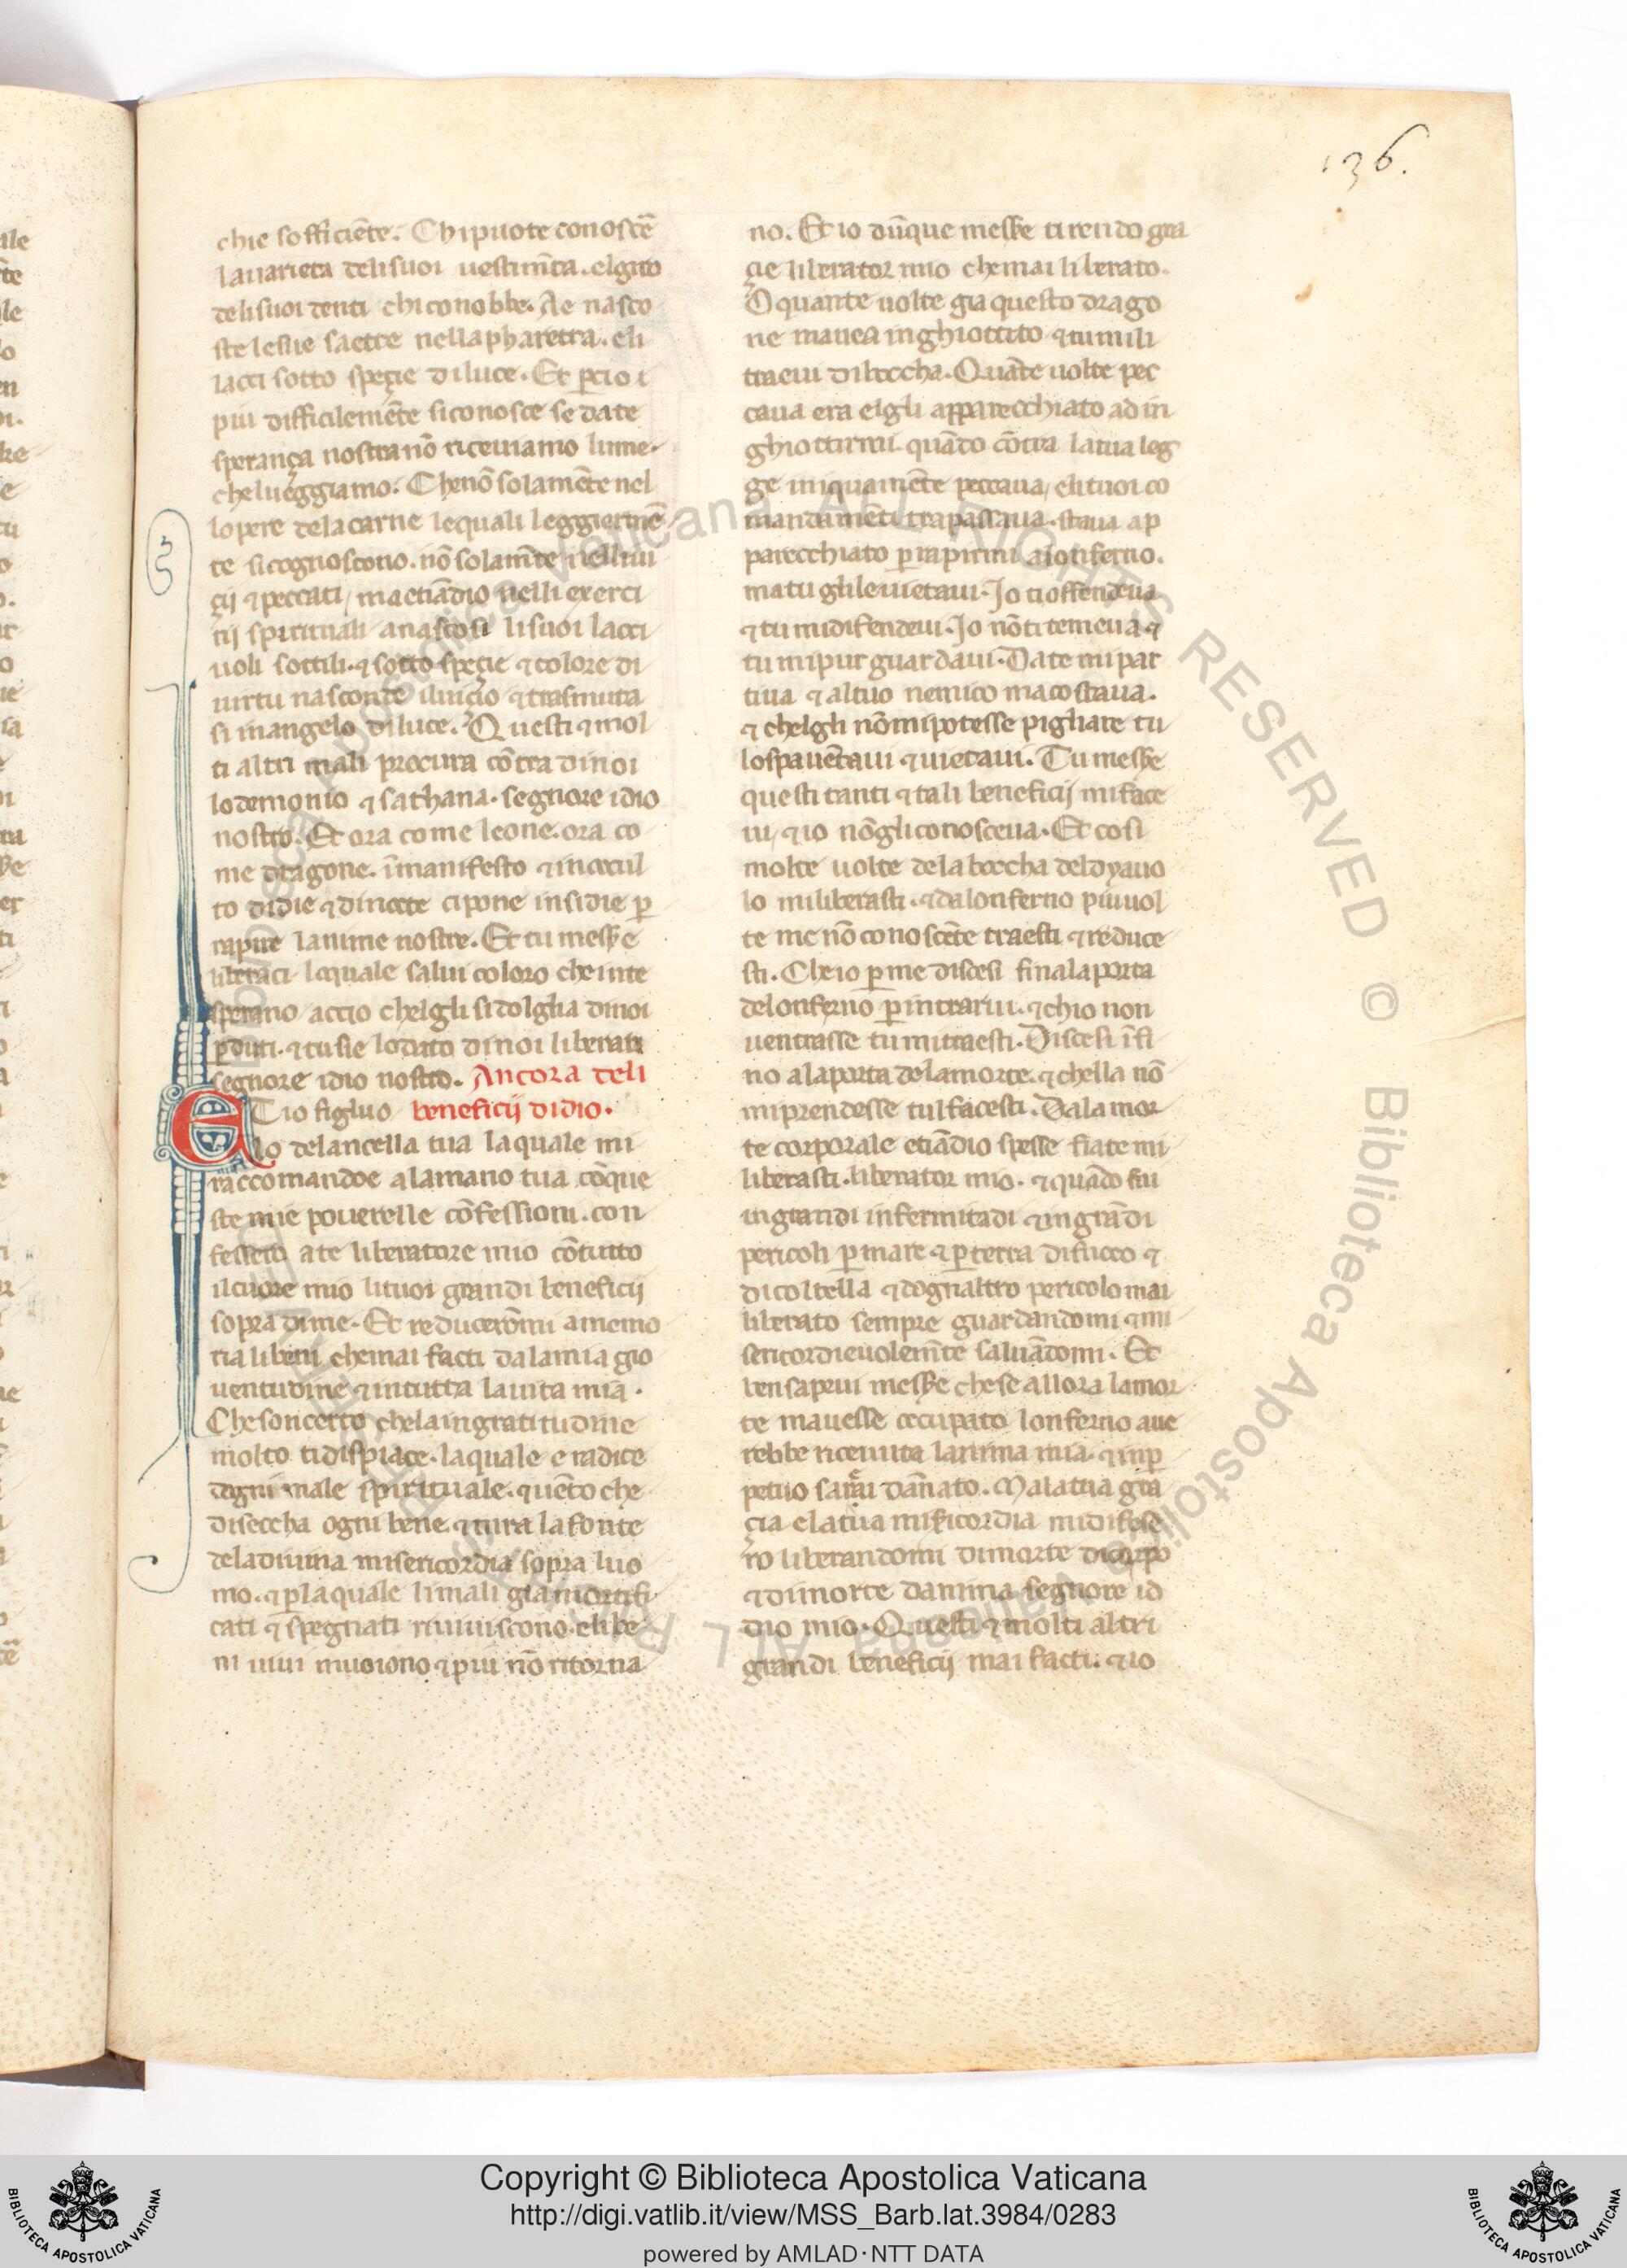 136.
chie sofficiēte. Chi puote conoscē
la uarieta deli suoi uestimēta. el giro
deli suoi denti chi conobbe. Ae nasco
ste le sue saette nella pharetra. eli
lacci sotto speçie di luce. Et ꝑcio i
piu difficilemēte si conosce se da te
sperança nostra nō riceuiamo lume.
che lueggiamo. Che nō solamēte nel
lopere dela carne le quali leggiermē
te si cognoscono. nō solamēte nelli ui
çij ⁊ peccati/ ma etiādio nelli exerci
tij spirituali a nascosi li suoi lacci
uoli sottili. ⁊ sotto speçie ⁊ colore di
uirtu nasconde il uiçio ⁊ trasmuta
si in angelo di luce. Questi ⁊ mol
ti altri mali procura cōtra di noi
lo demonio ⁊ sathana. segnore idio
nostro. Et ora come leone. ora co
me dragone. ī manifesto ⁊ in occul
to di die ⁊ di nocte ci pone insidie ꝑ
rapire lanime nostre. Et tu messe
liberaci lo quale salui coloro che in te
sperano accio chelgli si dolglia di noi
ꝑduti. ⁊ tu sie lodato di noi liberati
segnore idio nostro. Ancora deli
ET io figluo beneficij di dio.
lo delancella tua la quale mi
raccomandoe ala mano tua cō que
ste mie pouerelle cōfessioni. con
fessero a te liberatore mio cō tutto
il cuore mio li tuoi grandi beneficij
sopra di me. Et reducerōmi a memo
ria li beni che mai facti dala mia gio
uentudine ⁊ in tutta la uita mia.
Che son certo che la ingratitudine
molto ti dispiace. la quale e radice
dogni male spirituale. ⁊ uēto che
diseccha ogni bene. ⁊ tura la fonte
dela diuina misericordia sopra luo
mo. ⁊ ꝑ la quale li mali gia mortifi
cati ⁊ spegnati riuiuiscono. eli be
ni uiui muoiono ⁊ piu nō ritorna
no. Et io dūque messe ti rendo gra
çie liberator mio che mai liberato.
O quante uolte gia questo drago
ne mauea inghiottito ⁊ tu mili
traeui di boccha. Quāte uolte pec
caua era elgli apparecchiato ad in
ghiottirmi. quādo cōtra la tua leg
ge iniquamēte peccaua/ eli tuoi co
mandamēti trapassaua. staua ap
parecchiato ꝑ rapirmi alonferno.
ma tu gli le uietaui. Io ti offendeua
⁊ tu mi difendeui. Io nō ti temeua ⁊
tu mi pur guardaui. Da te mi par
tiua ⁊ al tuo nemico macostaua.
⁊ chelgli nō mi potesse pigliare tu
lo spauētaui ⁊ uietaui. Tu messe
questi tanti ⁊ tali beneficij mi face
ui/ ⁊ io nō gli conosceua. Et cosi
molte uolte dela boccha del dyauo
lo mi liberasti. ⁊ da lonferno piu uol
te me nō conoscēte traesti ⁊ reduce
sti. Che io ꝑ me discesi fin ala porta
delonferno ꝑ intrarui. ⁊ chio non
uentrasse tu mi traesti. Discesi ī fi
no ala porta dela morte. ⁊ chella nō
mi prendesse tul facesti. Dala mor
te corporale etiādio spesse fiate mi
liberasti. liberator mio. ⁊ quādo fui
in grandi infermitadi ⁊ in grādi
pericoli ꝑ mare ⁊ ꝑ terra di fuoco ⁊
di coltella ⁊ dognaltro pericolo mai
liberato sempre guardandomi ⁊ mi
sericordieuolemēte saluādomi. Et
ben sapeui messe che se allora la mor
te mauesse occupato lonferno aue
rebbe riceuuta lanima mia. ⁊ in ꝑ
petuo sarei dānato. Ma la tua gra
çia e la tua misericordia mi difese
ro liberandomi di morte di corpo
⁊ di morte danima segnore id
dio mio. Questi ⁊ molti altri
grandi beneficij mai facti. ⁊ io
Copyright © Biblioteca Apostolica Vaticana
http://digi.vatlib.it/view/MSS_Barb.lat.3984/0283
powered by AMLAD·NTT DATA
BIBLIOTECA APOSTOLICA VATICANA
BIBLIOTECA APOSTOLICA VATICANA